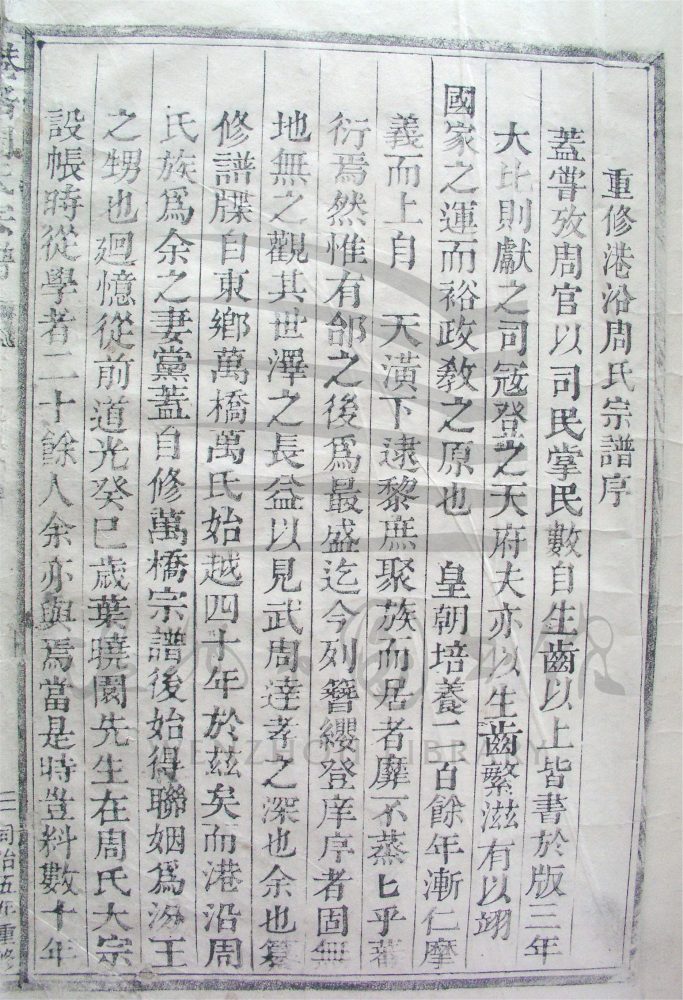 重修港沿周氏宗譜序
蓋嘗攷周官以司民掌民數自生齒以上皆書於版三年
大比則獻之司冦登之天府夫亦以生齒繁滋有以翊
國家之運而裕政敎之原也　皇朝培養二百餘年漸仁摩
義而上自　天潢下逮黎庶聚族而居者靡不蒸匕乎蕃
衍焉然惟有邰之後爲最盛迄今列簪纓登庠序者固無
地無之觀其世澤之長益以見武周達孝之深也余也纂
修譜牒自東鄉萬橋萬氏始越四十年於茲矣而港沿周
氏族爲余之妻黨蓋自修萬橋宗譜後始得聯姻爲汝王
之甥也廻憶從前道光癸巳歲葉曉園先生在周氏大宗
設帳時從學者二十餘人余亦與焉當是時豈料數十年
周氏宗譜
二 同治五年重修
WENZHOU LIBRARY